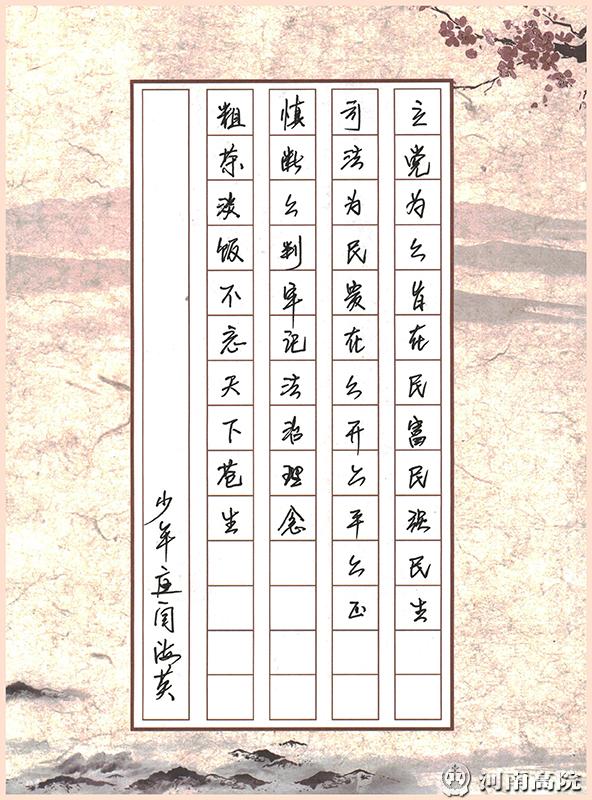 立党为公旨在民富民强民生
司法为民贵在公开公平公正
慎断公判牢记法治理念
粗茶淡饭不忘天下苍生
少年庭闫海英
河南高院